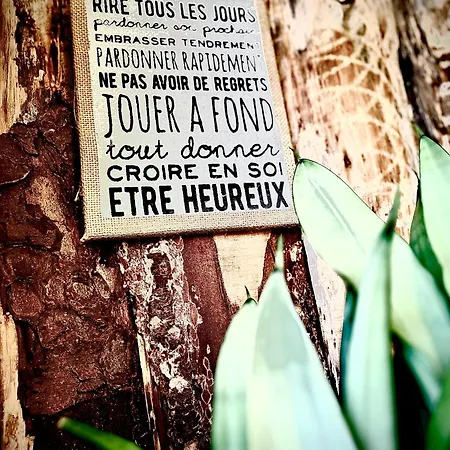 RIRE TOUS LES JOURS
pardonner son prochain
EMBRASSER TENDREMENT
PARDONNER RAPIDEMENT
NE PAS AVOIR DE REGRETS
JOUER A FOND
tout donner
CROIRE EN SOI
ETRE HEUREUX